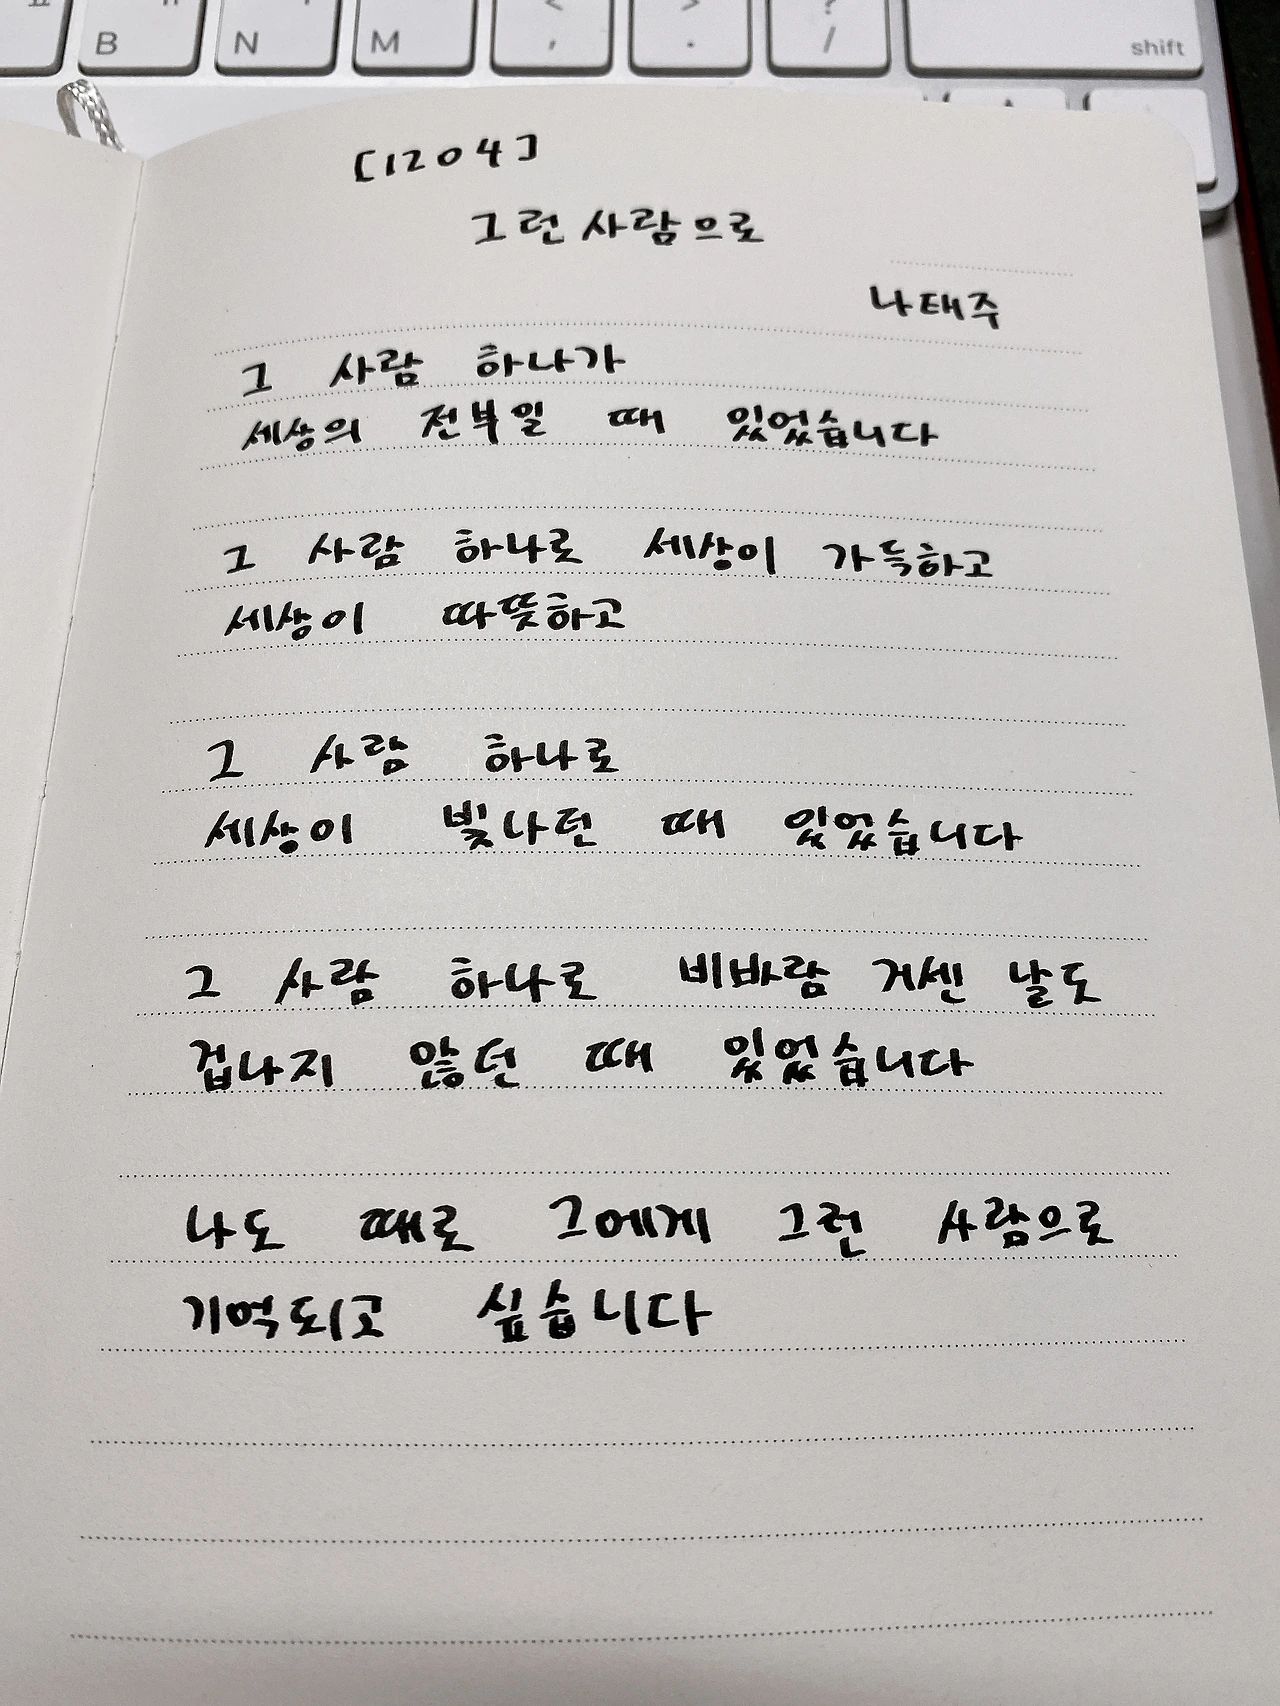 B N M < , > . ? / shift
[1204]
그런 사람으로
나태주
그 사람 하나가
세상의 전부일 때 있었습니다
그 사람 하나로 세상이 가득하고
세상이 따뜻하고
그 사람 하나로
세상이 빛나던 때 있었습니다
그 사람 하나로 비바람 거센 날도
겁나지 않던 때 있었습니다
나도 때로 그에게 그런 사람으로
기억되고 싶습니다